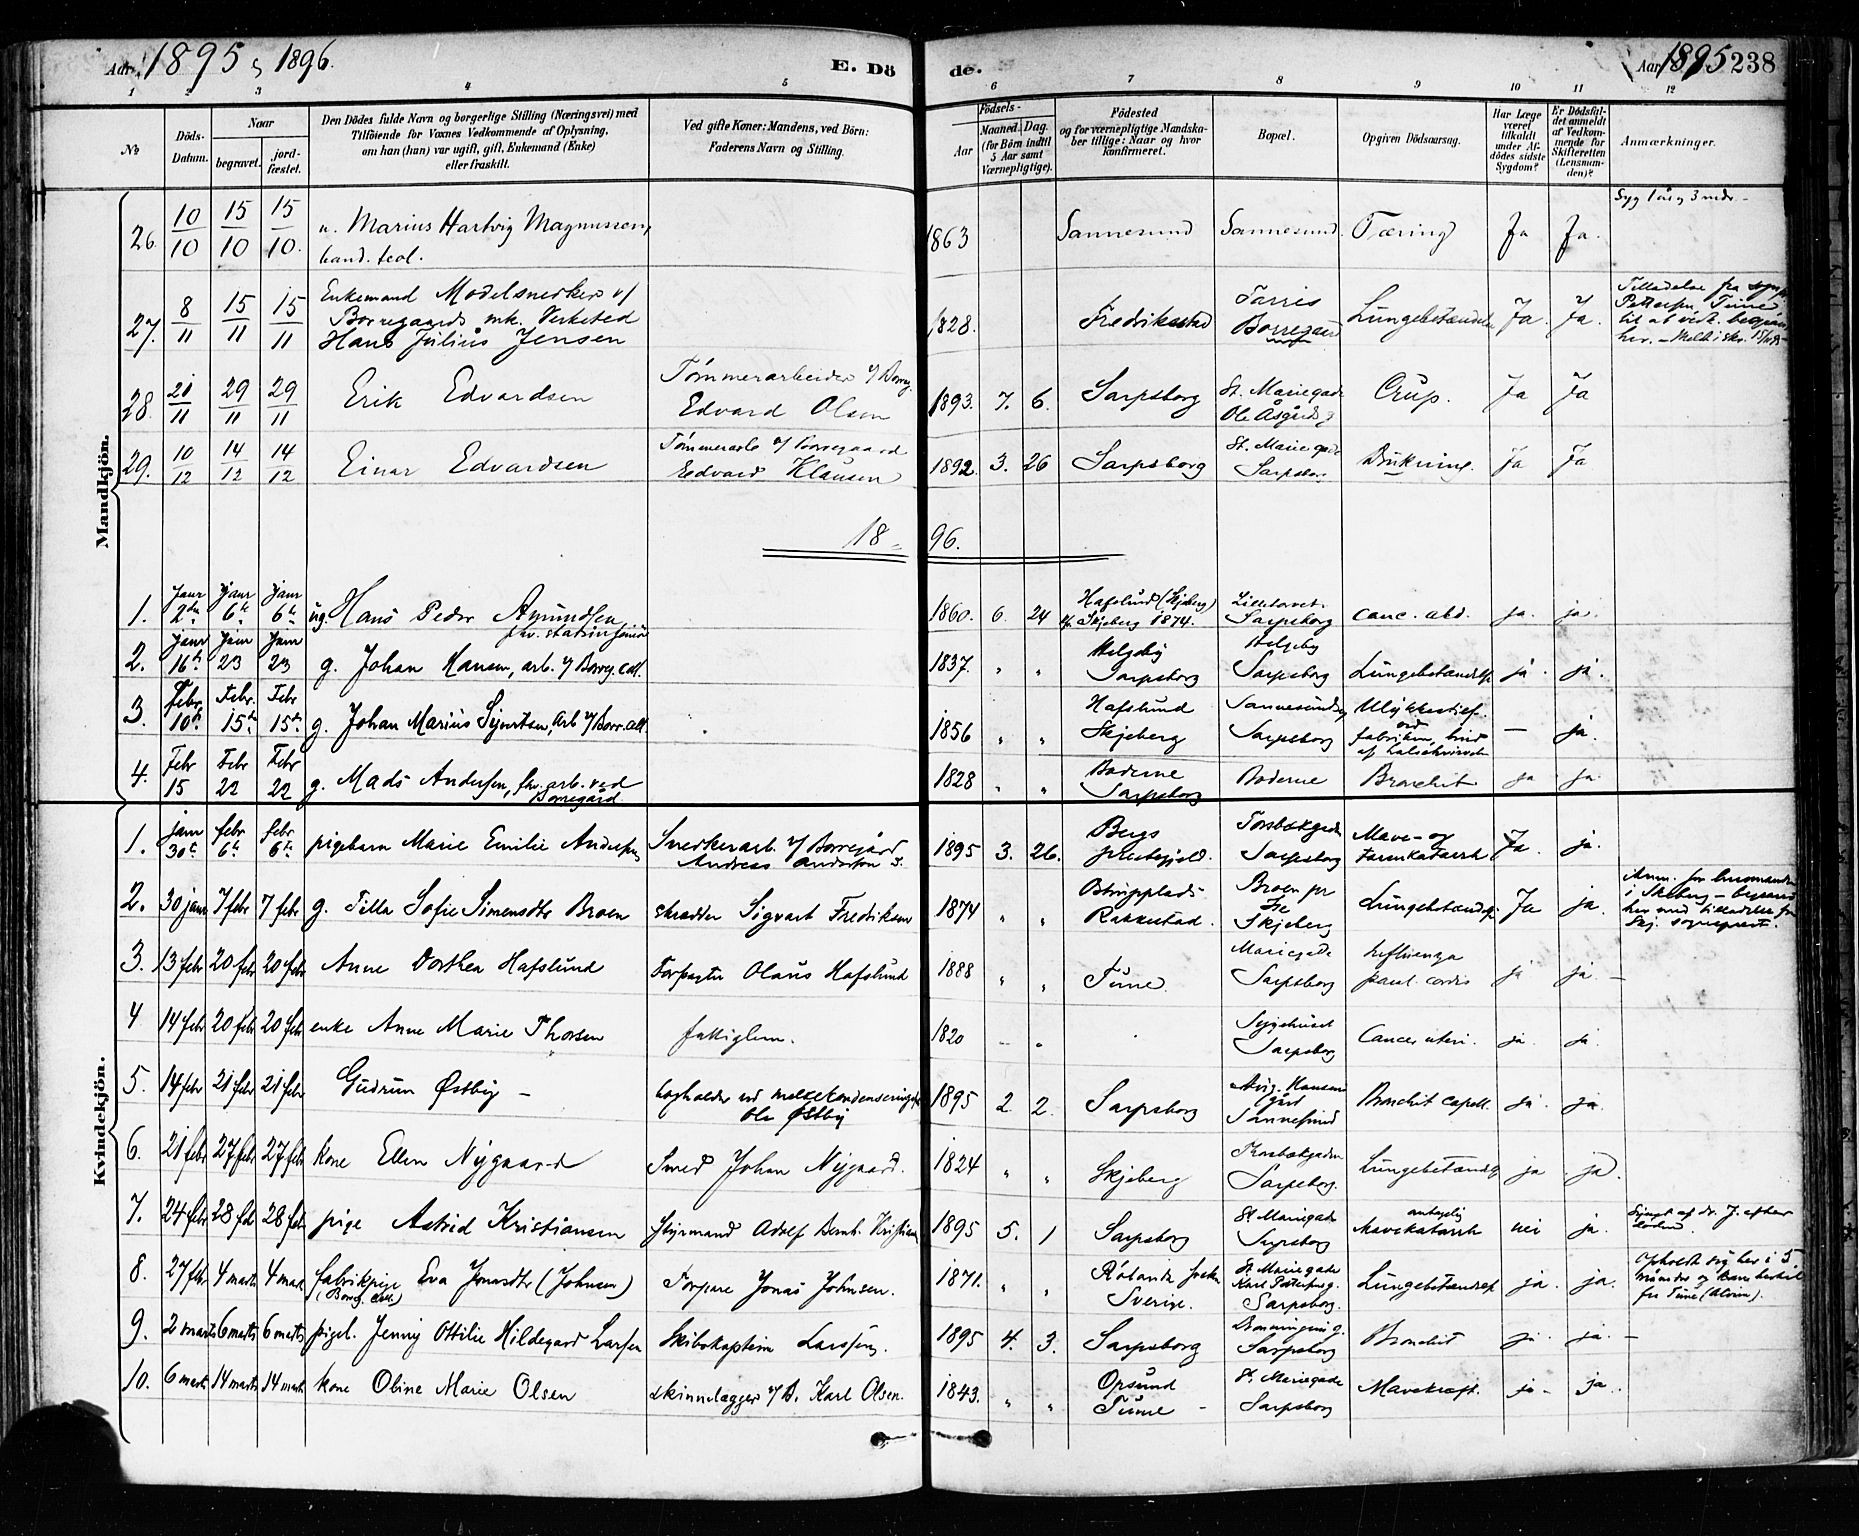 Aar 1895 & 1896. E. Dö
de. Aar 1895 238
1 2 3 4 5 6 7 8 9 10 11 12
№ Döds-Datum. Naar begravet. jord-fæstet. Den Dödes fulde Navn og borgerlige Stilling (Næringsvei) med Tilföiende for Voxnes Vedkommende af Oplysning, om han (hun) var ugift, gift, Enkemand (Enke) eller fraskilt. Ved gifte Koner: Mandens, ved Börn: Faderens Navn og Stilling. Födsels- Aar Maaned. Dag. (for Börn indtil 5 Aar samt Værnepligtige). Födested og for værnepligtige Mandskaber tillige: Naar og hvor Konfirmeret. Bopæl. Opgiven Dödsaarsag. Har Læge været tilkaldt under Afdödes sidste Sygdom? Er Dödsfaldet anmeldt af Vedkommende for Skifteretten (Lensmanden)? Anmærkninger.
Mandkjön.
26 10/10 15/10 15/10. u. Marius Hartvig Magnussen, 1863 Sannesund Sannesund Tæring Ja Ja. Syg 1 år og 3 mdr.
27. 8/11 15/11 15/11 Enkemand Modelsnerker v/ Borregaards mk. Verksted Hans Julius Jensen 1828. Fredriksstad Borregaard Lungebetændelse Ja. Ja. Tilladelse fra
28. 21/11 29/11 29/11 Erik Edvardsen Tømmerarbeider v/ Borreg. Edvard Olsen 1893. 7. 6. Sarpsborg St. Mariegade Ole Åsgårds g. Crup. Ja Ja
29. 10/12 14/12 14/12 Einar Edvardsen Tømmerarb. v/ Borregaard Edvard Klausen 1892. 3. 26 Sarpsborg St. Mariegade Sarpsborg Drukning. Ja Ja
18 96.
1. Janr 2den Janr 6te Janr 6te ug. Hans Peder Amundsen, fhv. 1860. 6. 24 Hafslund (Skjeberg) kf. Skjeberg 1874. Lilletorvet. Sarpsborg canc. abd. ja. ja.
2. Janr 16de Janr 23 Janr 23 g. Johan Hansen, arb. v/ Borreg. cell. 1837. " " Helgeby Sarpsborg Helgeby Sarpsborg Lungebetændelse ja. ja.
3. Febr. 10de Febr. 15de Febr 15de g. Johan Marius Syvertsen, Arb. v/ Borr. cell. 1856 " " Hafslund Skjeberg Sannesundsv. Sarpsborg Ulykkestilf. ved fabriken, brud af halshvirvel — ja.
4. Febr 15 Febr 22 Febr 22 g. Mads Andersen, fhv. arb. ved Borregård. 1828 " " Boderne Sarpsborg Boderne Bronchit ja ja.
Kvindekjön.
1. janr 30te febr 6te febr 6te pigebarn Marie Emilie Andersen Snerkerarb. v/ Borregård Andreas Andersen 1895 3. 26. Bergs prestegjeld. Torsbækgaden Sarpsborg Mave- og tarmkatarrh Ja. ja.
2. 30 janr 7 febr 7 febr g. Tilla Sofie Simensdtr Broen skredder Sigvart Fredriksen 1874 " " Rakkestad. Broen pr Ise Skjeberg Lungebetændelse Ja ja. Anm. for lensmanden i Skjeberg - begraves her med tilladelse fra Skj. sogneprest.
3. 13 febr 20 febr 20 febr Anne Dorthea Hafslund Forpagter Olaus Hafslund 1888 " " Tune Mariegade Sarpsborg Influenza paral. cordis ja ja. —
4 14 febr 20 febr 20 febr enke Anne Marie Thorsen fattiglem. 1820 Sygehuset Sarpsborg Cancer uteri. ja. ja.
5. 14 febr 21 febr 21 febr Gudrun Østby — bogholder ved melkekondenseringsfb. Ole Østby 1895 2 2. Sarpsborg Hansens gård Sannesund Bronchit capill. ja. ja.
6. 21 febr 27 febr 27 febr kone Ellen Nygaard Smed Johan Nygaard. 1824 " " Skjeberg Torsbækgaden Sarpsborg. Lungebetændelse ja ja.
7. 24 febr 28 febr 28 febr pige Astrid Kristiansen Styrmand Adolf Bernt. Kristiansen 1895 5. 1 Sarpsborg St. Mariegade Sarpsborg antagelig Mavekatarrh nei ja. Synet af dr. J. efter døden.
8. 27 febr 4 marts 4 marts fabrikpige (Borreg. cell.) Eva Jonasdtr (Johnsen) Torpare Jonas Johnsen. 1871. " " Sverige. St. Mariegade Sarpsborg. Lungebetændelse ja. ja. Opholdt sig her i 5 måneder og kom hertil fra Tune (Alvim).
9. 2 marts 6 marts 6 marts pigeb. Jenny Ottilie Hildegard Larsen Skibskaptein Larssen. 1895 4. 3. Sarpsborg Dronningens g. Sarpsborg Bronchit ja. ja. —
10. 6 marts 14 marts 14 marts kone Oline Marie Olsen skinnelægger v/ B. Karl Olsen. 1843. " " Opsund Tune St. Mariegade Sarpsborg Mavekræft. ja ja.